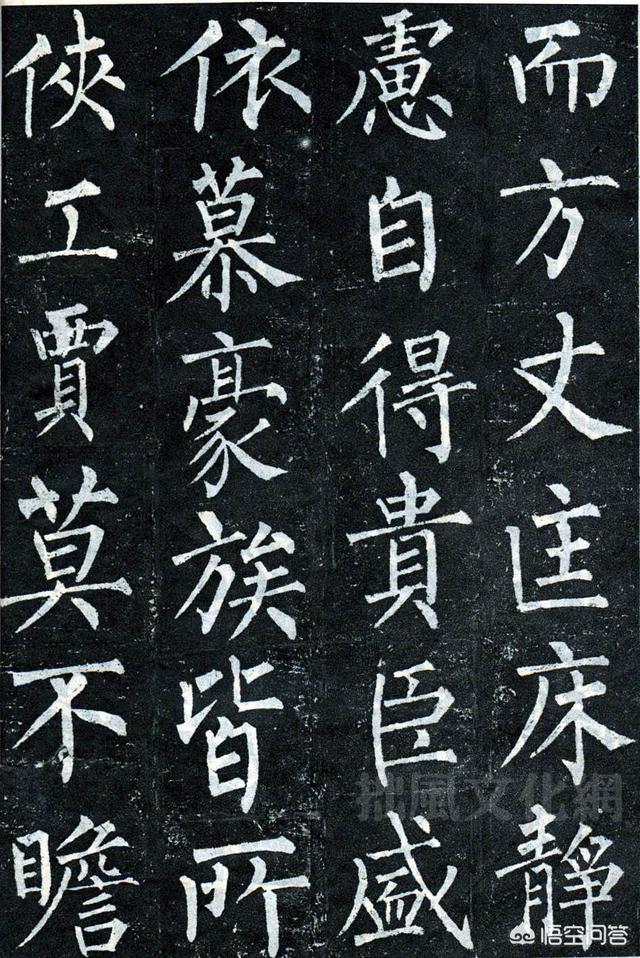 而方丈匡床靜
慮自得貴臣盛
依慕豪族皆所
俠工賈莫不瞻
拙風文化網
悟空问答